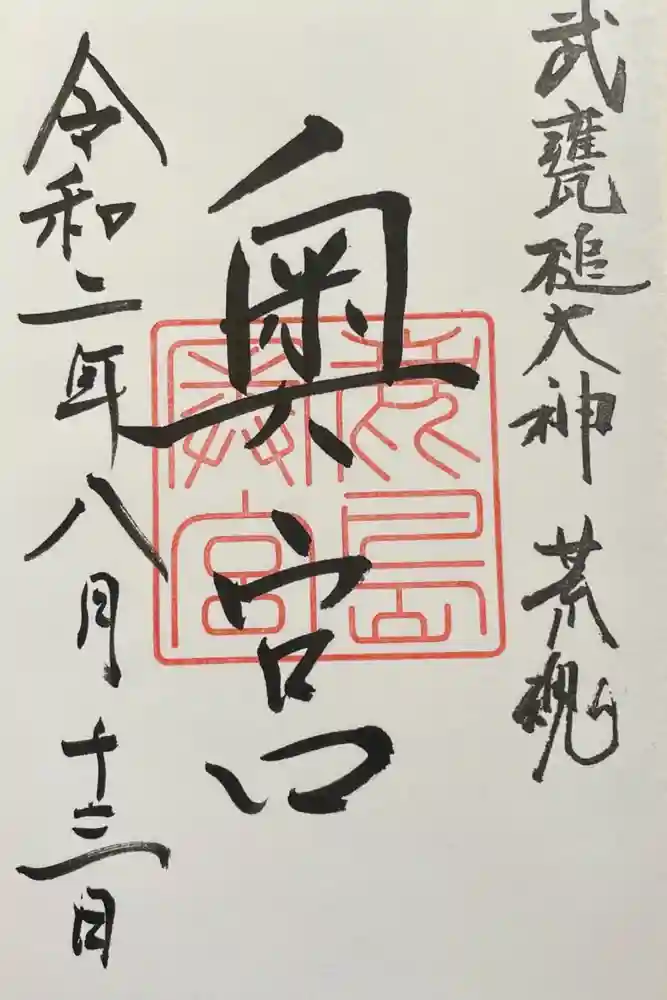 武甕槌大神 荒魂
奥宮
鹿島
奥宮
令和二年八月十三日